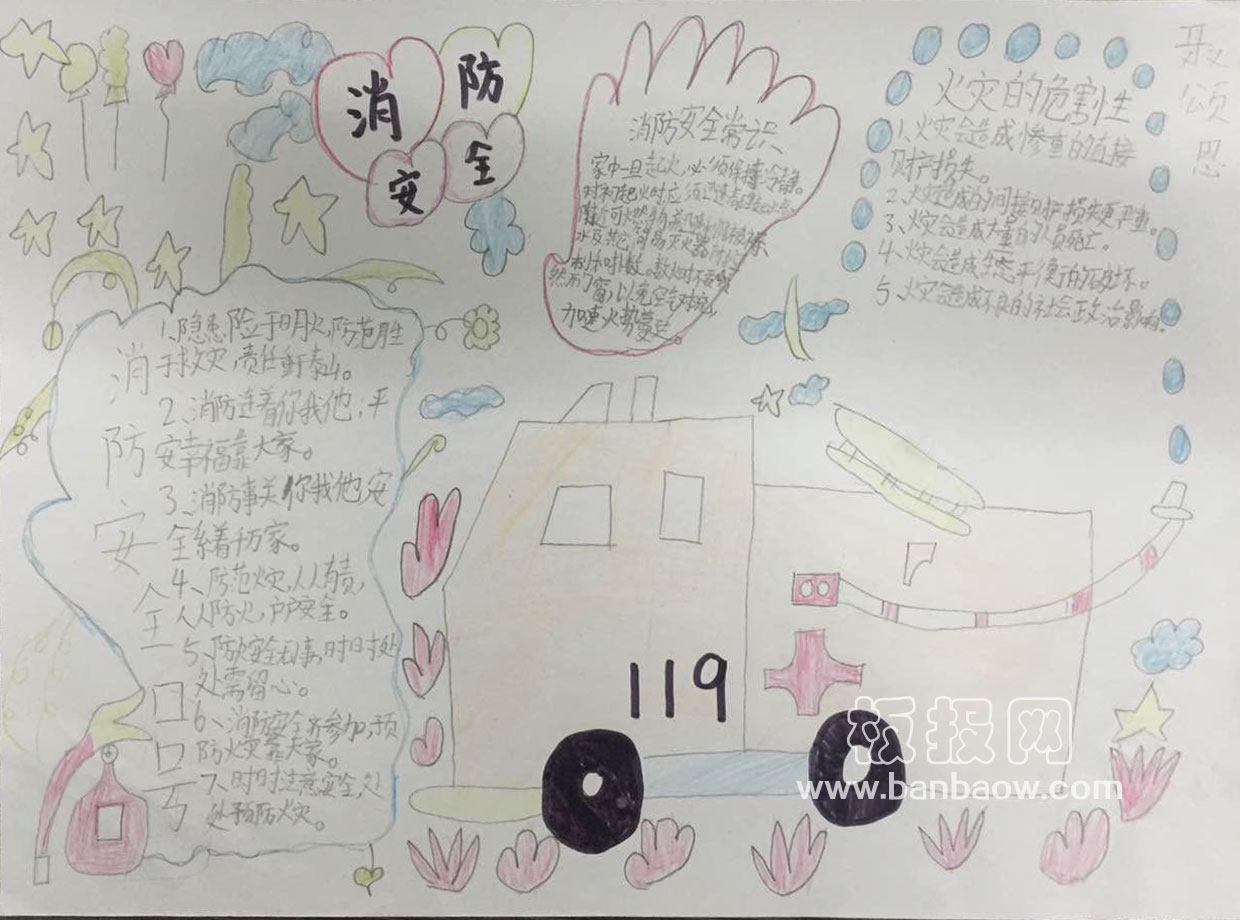 消
防
安
全
消防安全口号
1、隐患险于明火,防范胜
于救灾,责任重于泰山。
2、消防连着你我他,平
安幸福靠大家。
3、消防事关你我他,安
全系着千万家。
4、防范火灾,人人有责,
人人防火,户户安全。
5、防火安全无小事,时时处
处需留心。
6、消防安全齐参加,预
防火灾靠大家。
7、时时注意安全,处
处预防火灾。
消防安全常识
家中一旦起火,必须保持冷静。
对初起火时应
制和扑救。救火时不要贸
然开门窗,以免空气对流,
加速火势蔓延。
火灾的危害性
1、火灾会造成惨重的直接
财产损失。
2、火灾造成的间接财产损失更严重。
3、火灾会造成大量的人员死亡。
4、火灾会造成生态平衡的破坏。
5、火灾会造成不良的社会政治影响。
颂思
119
板报网
www.banbaow.com